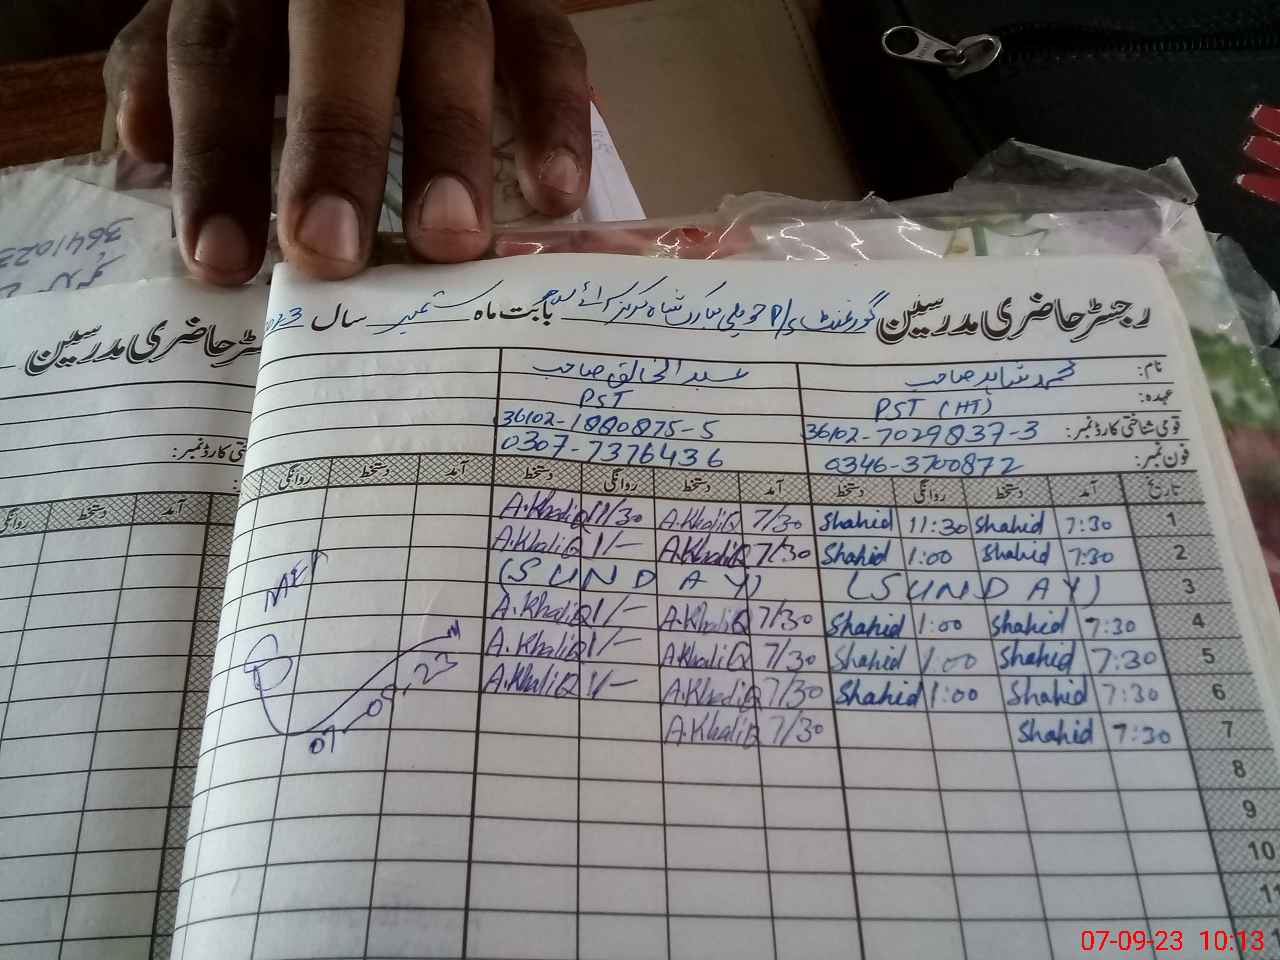 رجسٹر حاضری مدرسین گورنمنٹ P/S حویلی مبارک شاہ بابت ماہ ستمبر سال 2023
نام: محمد شاہد صاحب عبدالخالق صاحب
عہدہ: PST (HT) PST
قومی شناختی کارڈ نمبر: 36102-7029837-3 36102-1880875-5
فون نمبر: 0346-3700872 0307-7376436
تاریخ آمد دستخط روانگی دستخط آمد دستخط روانگی دستخط آمد دستخط روانگی
1 7:30 Shahid 11:30 Shahid 7/30 A.KhaliQ 11/30 A.KhaliQ
2 7:30 Shahid 1:00 Shahid 7/30 A.KhaliQ 1/— A.KhaliQ
3 (SUNDAY) (SUNDAY)
4 7:30 Shahid 1:00 Shahid 7/30 A.KhaliQ 1/— A.KhaliQ
5 7:30 Shahid 1:00 Shahid 7/30 A.KhaliQ 1/— A.KhaliQ
6 7:30 Shahid 1:00 Shahid 7/30 A.KhaliQ 1/— A.KhaliQ
7 7:30 Shahid 7/30 A.KhaliQ
8
9
10
11
07-09-23
رجسٹر حاضری مدرسین
قومی شناختی کارڈ نمبر:
آمد دستخط روانگی
07-09-23 10:13